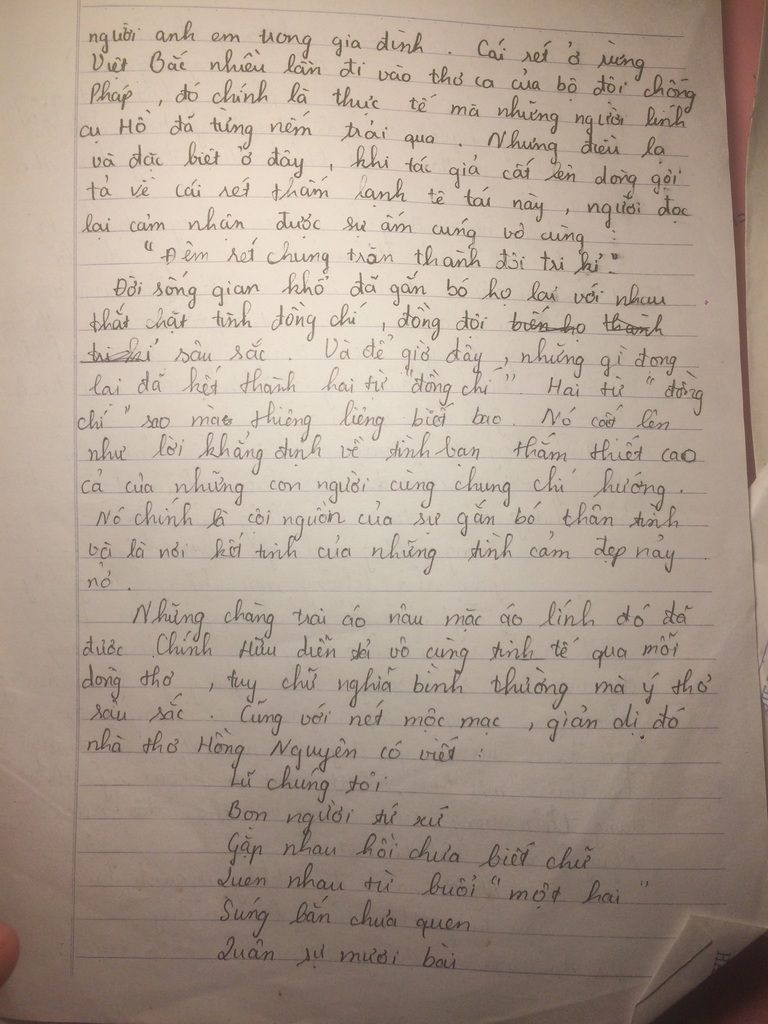 người anh em trong gia đình . Cái rét ở rừng
Việt Bắc nhiều lần đi vào thơ ca của bộ đội chống
Pháp , đó chính là thực tế mà những người lính
cụ Hồ đã từng nếm trải qua . Nhưng điều lạ
và đặc biệt ở đây , khi tác giả cất lên dòng gợi
tả về cái rét thấm lạnh tê tái này , người đọc
lại cảm nhận được sự ấm cúng vô cùng :
" Đêm rét chung trăn thành đôi tri kỉ "
Đời sống gian khổ đã gắn bó họ lại với nhau
thắt chặt tình đồng chí , đồng đội biến họ thành
tri kỉ sâu sắc . Và để giờ đây , những gì đọng
lại đã kết thành hai từ " đồng chí " . Hai từ " đồng
chí " sao mà thiêng liêng biết bao . Nó cất lên
như lời khẳng định về tình bạn thắm thiết cao
cả của những con người cùng chung chí hướng .
Nó chính là cội nguồn của sự gắn bó thân tình
và là nơi kết tinh của những tình cảm đẹp nảy
nở .
Những chàng trai áo nâu mặc áo lính đó đã
được Chính Hữu diễn tả vô cùng tinh tế qua mỗi
dòng thơ , tuy chữ nghĩa bình thường mà ý thơ
sâu sắc . Cũng với nét mộc mạc , giản dị đó
nhà thơ Hồng Nguyên có viết :
Lũ chúng tôi
Bọn người tứ xứ
Gặp nhau hồi chưa biết chữ
Quen nhau từ buổi " một hai "
Súng bắn chưa quen
Quân sự mươi bài